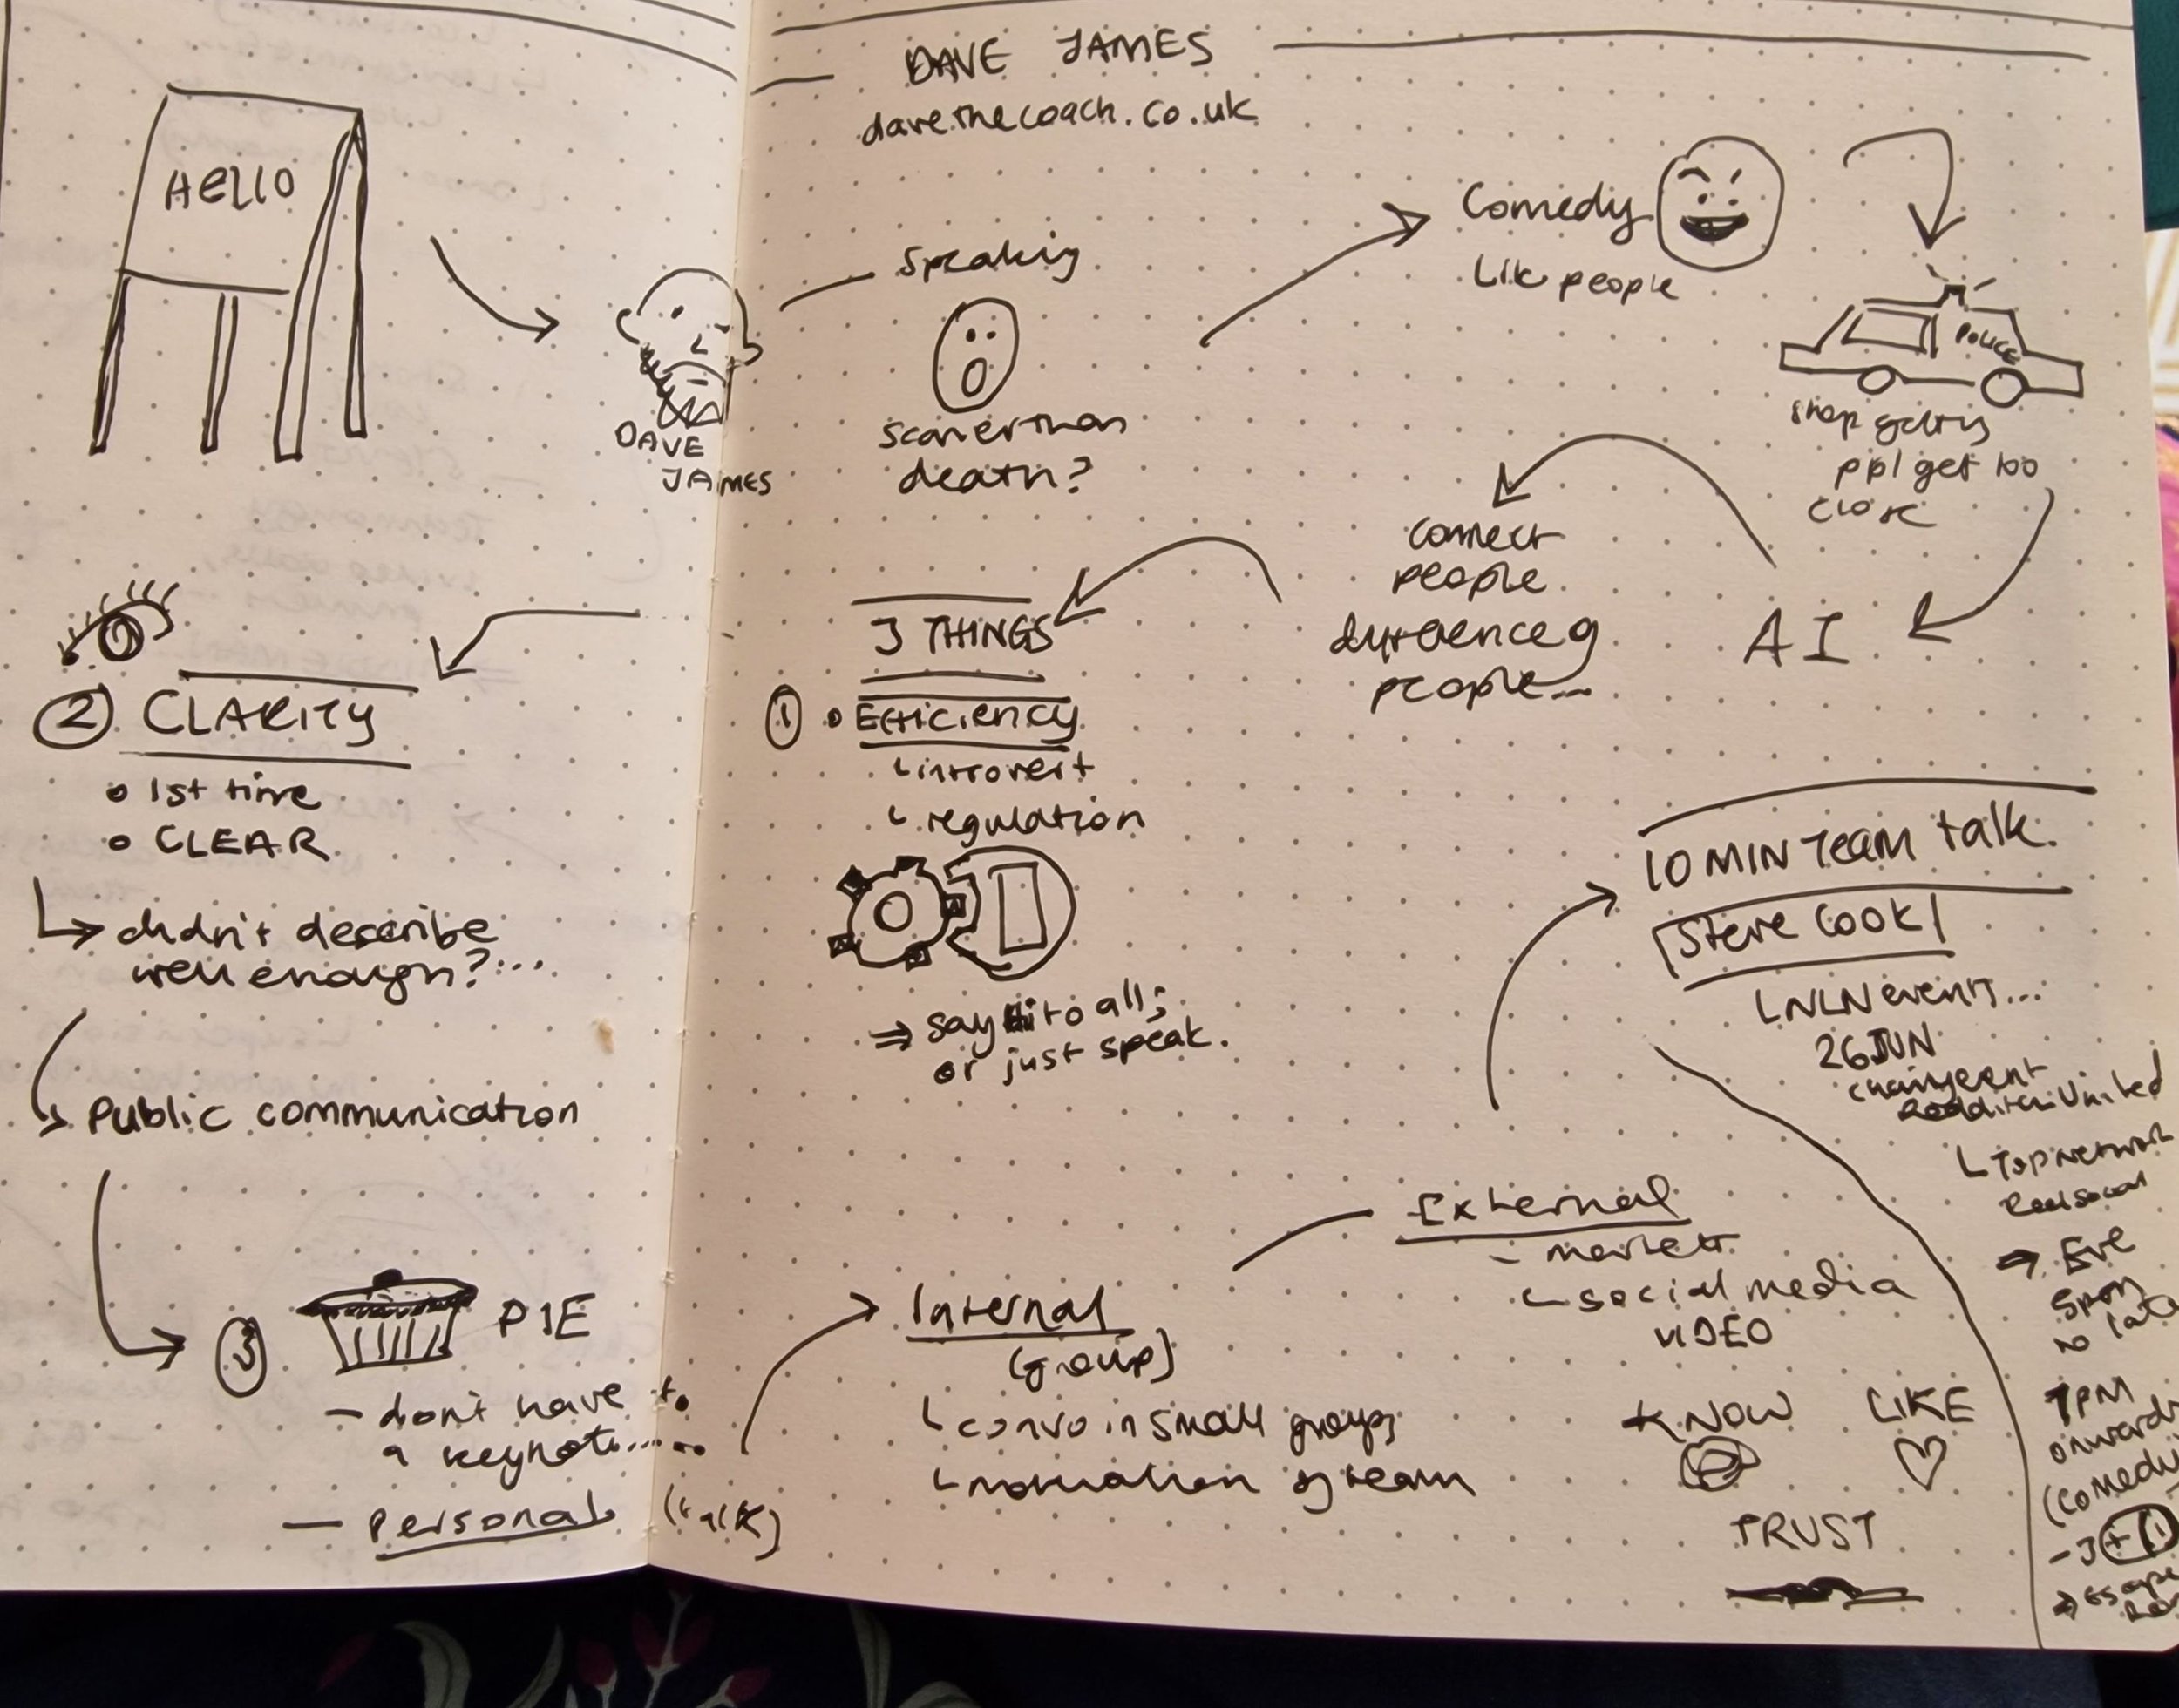 DAVE JAMES
davethecoach.co.uk
HELLO
DAVE
JAMES
Speaking
scarier than
death?
Comedy
Like people
POLICE
ppl get too
close
AI
connect
people
people...
3 THINGS
① • Efficiency
introvert
regulation
⇒ say Hi to all;
or just speak.
② CLARITY
• 1st time
• CLEAR
didn't describe
well enough?...
Public communication
③ PIE
- don't have to
a keynote......
- Personal (talk)
Internal
(group)
convo in small groups
motivation of team
External
social media
VIDEO
KNOW LIKE
TRUST
10 MIN Team talk.
Steve Cook
NLN events...
26 JUN
Redditch United
Top Network
Real social
⇒ Eve
7PM
onwards
(comedy
⇒ Escape